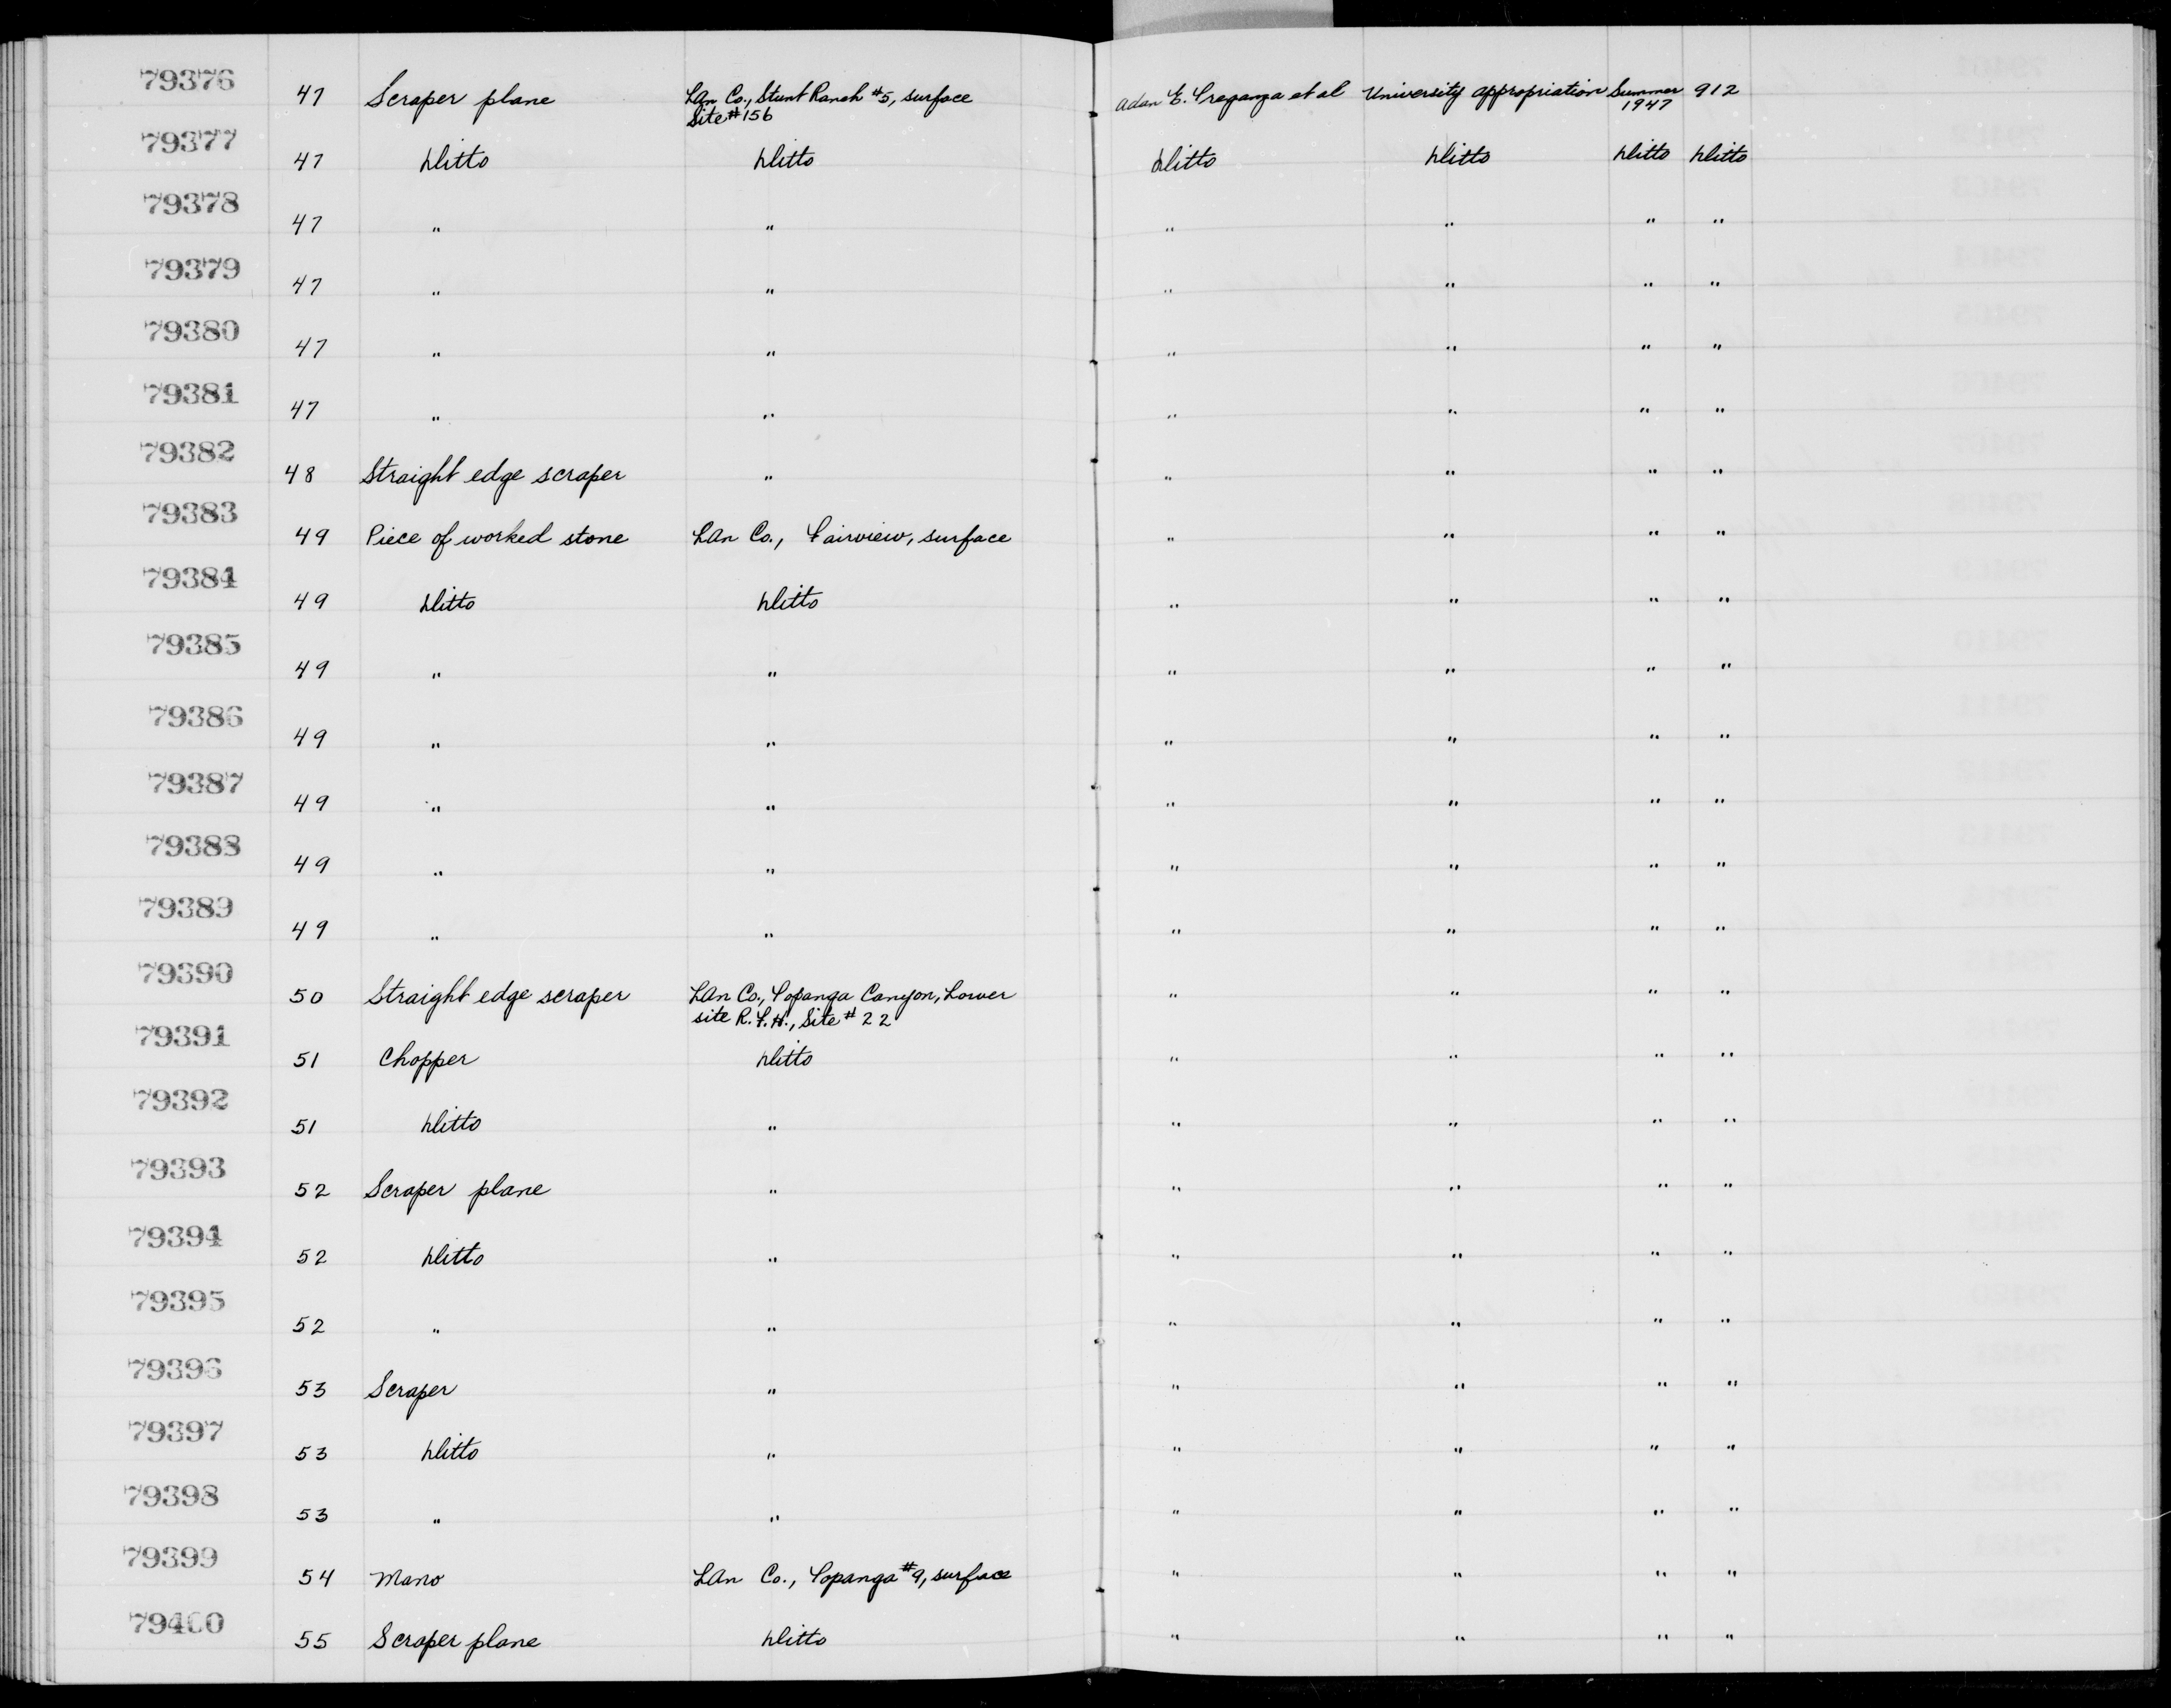 79376 47 Scraper plane LAn Co., Stunt Ranch #5, surface Adan E. Treganza et al University appropriation Summer 912
Site #156 1947
79377 47 Ditto Ditto Ditto Ditto Ditto Ditto
79378 47 " " " " " "
79379 47 " " " " " "
79380 47 " " " " " "
79381 47 " " " " " "
79382 48 Straight edge scraper " " " " "
79383 49 Piece of worked stone LAn Co., Fairview, surface " " " "
79384 49 Ditto Ditto " " " "
79385 49 " " " " " "
79386 49 " " " " " "
79387 49 " " " " " "
79388 49 " " " " " "
79389 49 " " " " " "
79390 50 Straight edge scraper LAn Co., Topanga Canyon, Lower " " " "
site R.F.H., Site #22
79391 51 Chopper Ditto " " " "
79392 51 Ditto " " " " "
79393 52 Scraper plane " " " " "
79394 52 Ditto " " " " "
79395 52 " " " " " "
79396 53 Scraper " " " " "
79397 53 Ditto " " " " "
79398 53 " " " " " "
79399 54 Mano LAn Co., Topanga #9, surface " " " "
79400 55 Scraper plane Ditto " " " "